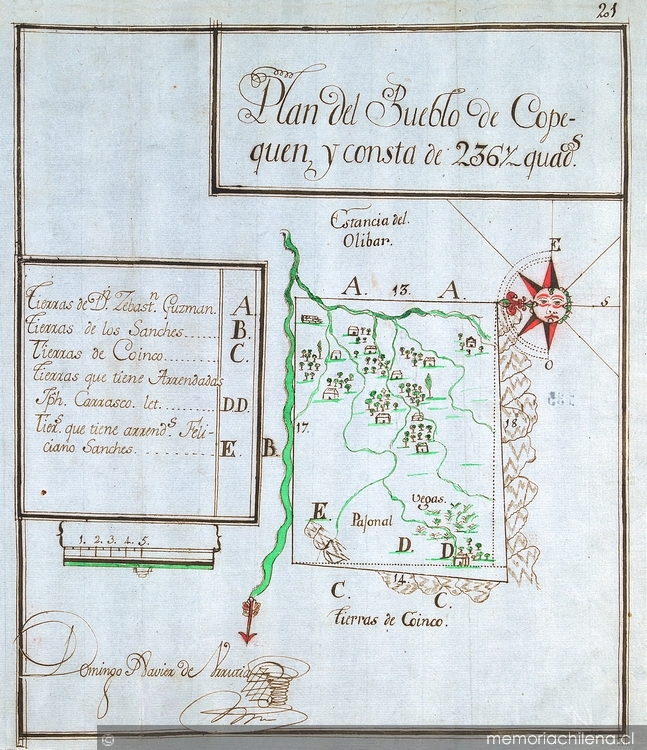 201
Plan del Pueblo de Cope-
quen, y consta de 236½ quad.s
Estancia del
Olibar.
E
S
O
A. 13. A.
Tierras de D.n Zebast.n Guzman. A
Tierras de los Sanches...... B
Tierras de Coinco........ C.
Tierras que tiene Arrendadas
Jph. Carrasco. let. ........ D.D.
Tier.s que tiene arrend.s Feli-
ciano Sanches............ E.
B.
17.
18
E.
Pajonal
Vegas.
D. D
14.
C. C.
Tierras de Coinco.
1. 2. 3. 4. 5.
Domingo Xavier de Vrrutia
© memoriachilena.cl